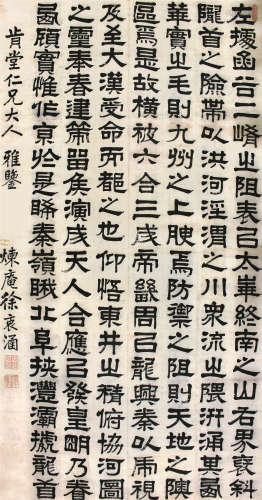 左據函谷二崤之阻表以太華終南之山右界褒斜
隴首之險帶以洪河涇渭之川眾流之隈汧涌其西
華實之毛則九州之上腴焉防禦之阻則天地之隩
區焉是故橫被六合三成帝畿周以龍興秦以虎視
及至大漢受命而都之也仰悟東井之精俯協河圖
之靈奉春建策留侯演成天人合應以發皇明乃眷
西顧實惟作京於是睎秦嶺睋北阜挾灃灞據龍首
肯堂仁兄大人 雅鑒
煉庵徐